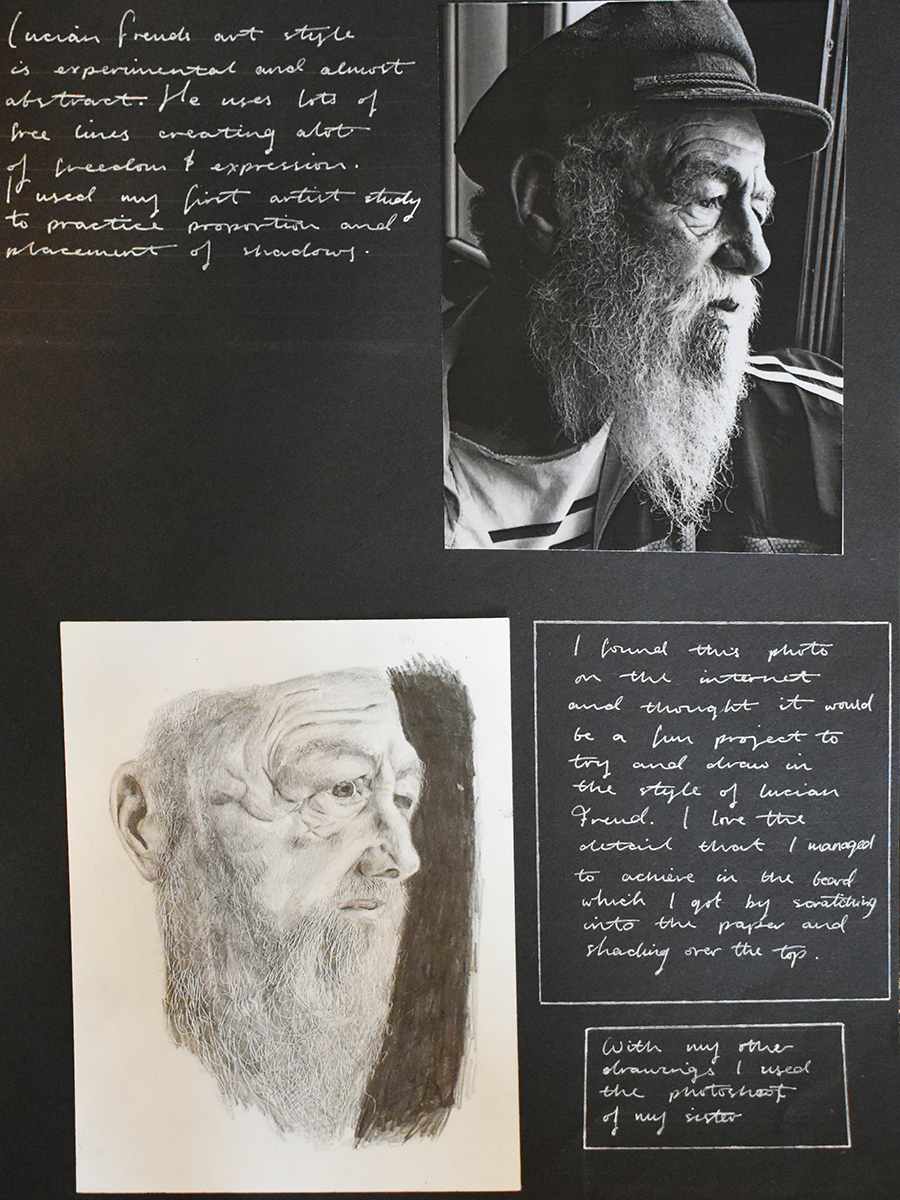 Lucian Freuds art style
is experimental and almost
abstract. He uses lots of
free lines creating alot
of freedom & expression.
I used my first artist study
to practice proportion and
placement of shadows.
I found this photo
on the internet
and thought it would
be a fun project to
try and draw in
the style of Lucian
Freud. I love the
detail that I managed
to achieve in the beard
which I got by scratching
into the paper and
shading over the top.
With my other
drawings I used
the photoshoot
of my sister